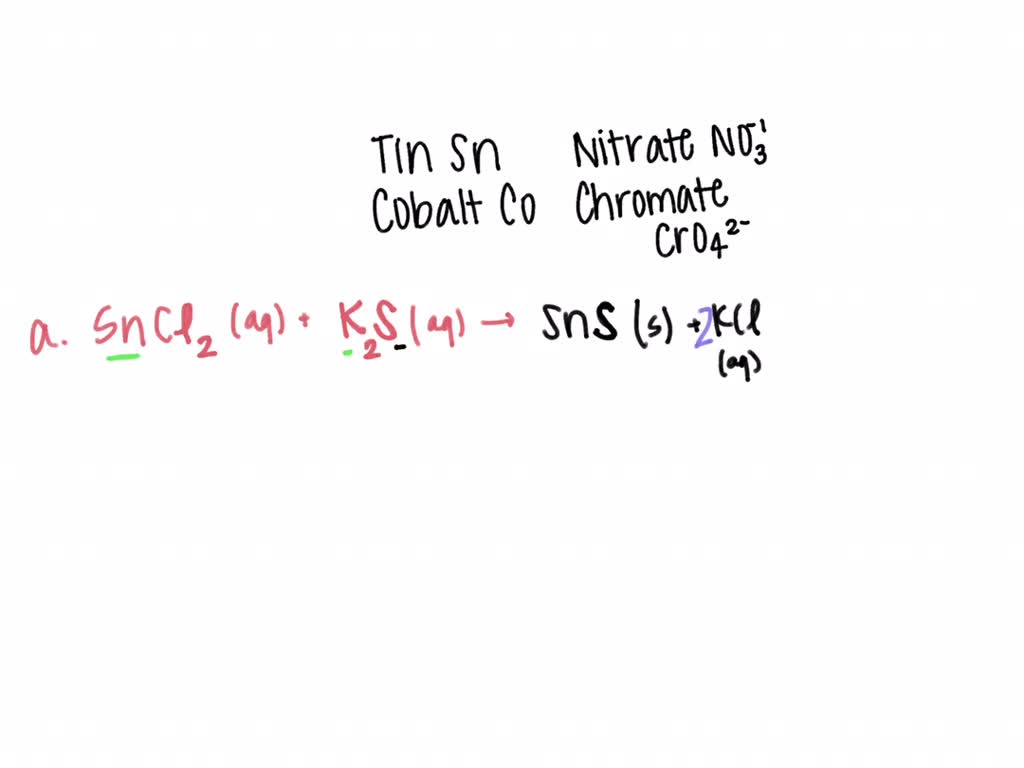 Tin Sn Nitrate NO₃⁻¹
Cobalt Co Chromate
CrO₄²⁻
a. SnCl₂ (aq) + K₂S (aq) → SnS (s) + 2KCl
(aq)